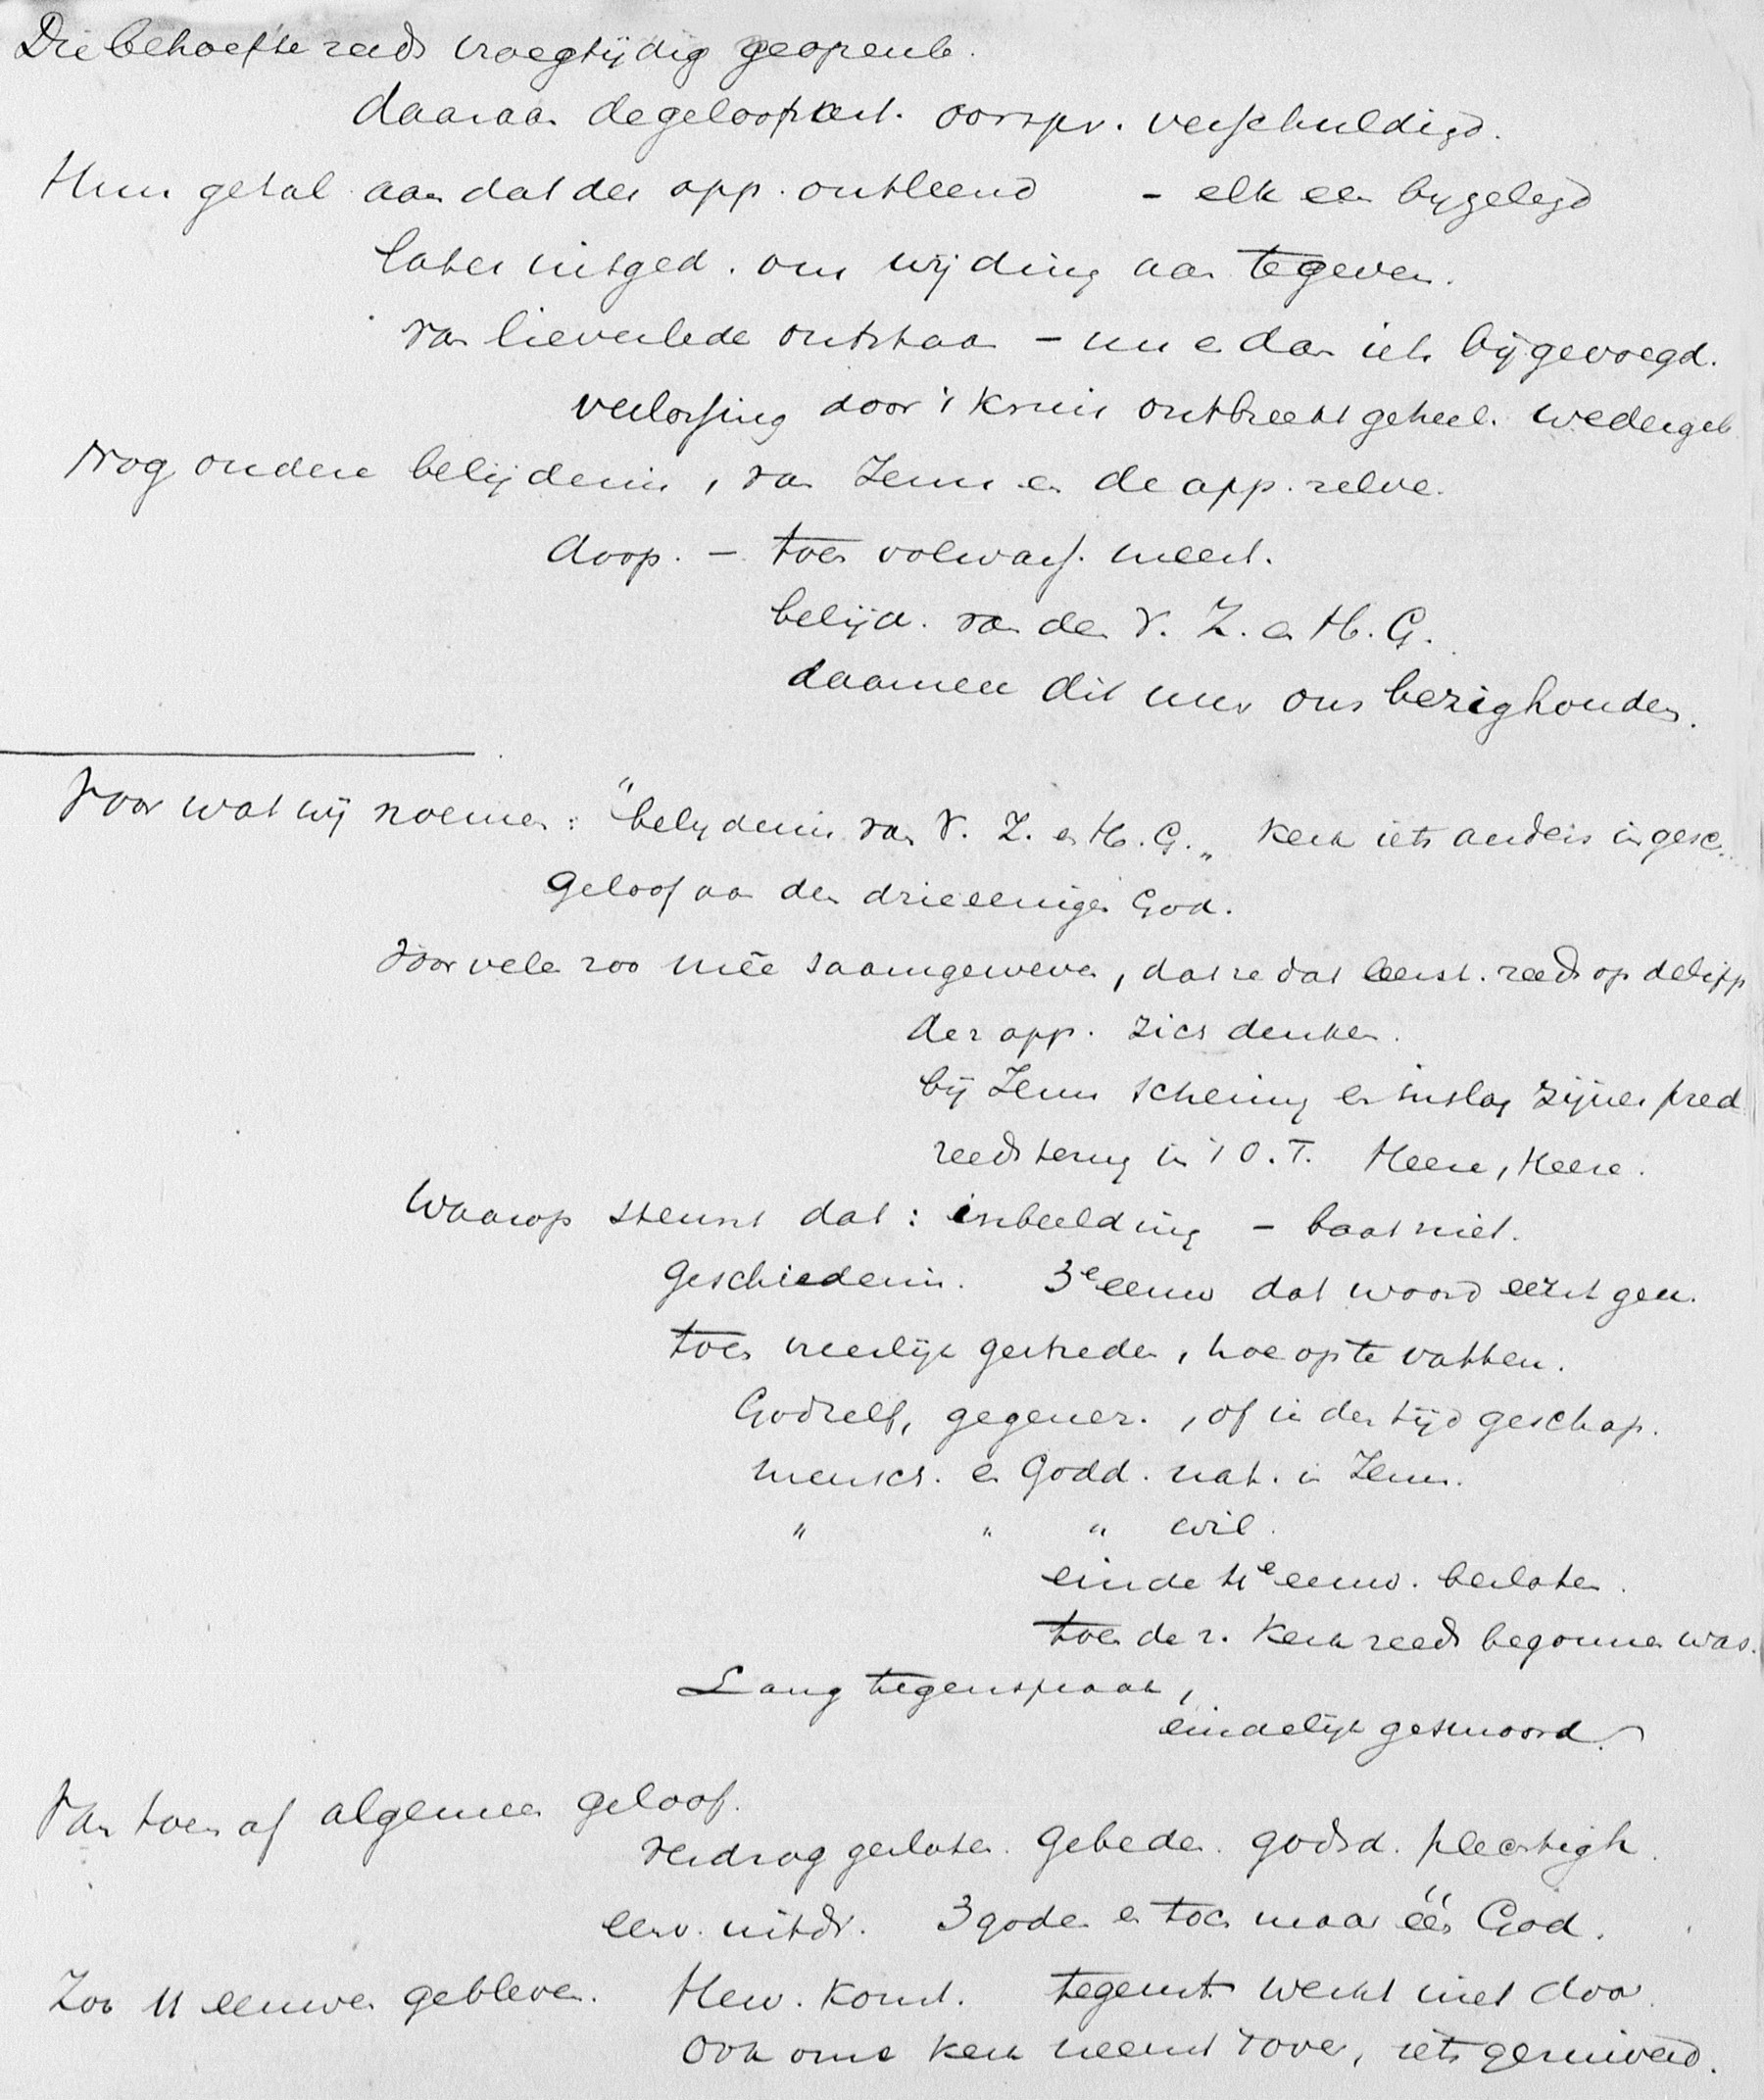 Die behoefte reeds vroegtijdig geopenb.
daaraan de geloofsart. oorspr. verschuldigd.
Hun getal aan dat der app. ontleend - elk een bijgelegd
later uitged. om wijding aan te geven.
van lieverlede ontstaan - nu en dan iets bijgevoegd.
verlossing door 't kruis ontbreekt geheel. wedergeb
Nog oudere belijdenis, van Jezus en de app. zelve.
doop. - toen volwass. meest.
belijd. van den V. Z. en H. G.
daarmee dit uur ons bezighouden.
Voor wat wij noemen: "belijdenis van V. Z. en H. G." kerk iets anders in gesc.
Geloof aan den drieeenigen God.
Voor velen zoo mêe saamgeweven, dat ze dat leerst. reeds op de lipp
der app. zich denken.
bij Jezus schering en inslag zijner pred
reeds terug in 't O. T. Heere, Heere.
Waarop steunt dat: inbeelding - baat niet.
Geschiedenis. 3e eeuw dat woord eerst gen.
toen vreeslijk gestreden, hoe op te vatten.
God zelf, gegener., of in den tijd geschap.
mensch. en Godd. nat. in Jezus.
" " " wil.
einde 4e eeuw. besloten.
toen de r. kerk reeds begonnen was.
Lang tegenspraak,
eindelijk gesmoord.
Van toen af algemeen geloof.
verdrag gesloten. Gebeden. godsd. plechtigh.
eerv. uitdr. 3 goden en toch maar één God.
Zoo 11 eeuwen gebleven. Herv. komt. tegenst. werkt niet door.
Ook onze kerk neemt 't over, iets gezuiverd.